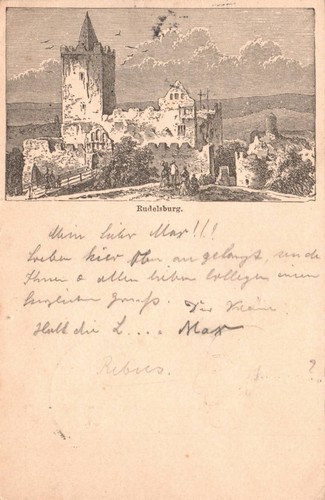 Rudelsburg.
Mein lieber Max!!!
Soeben hier oben angelangt, sende
Ihnen & allen lieben Collegen meinen
herzlichen Gruß.
Der Kleine
Halt die L.... Max
Rebus.